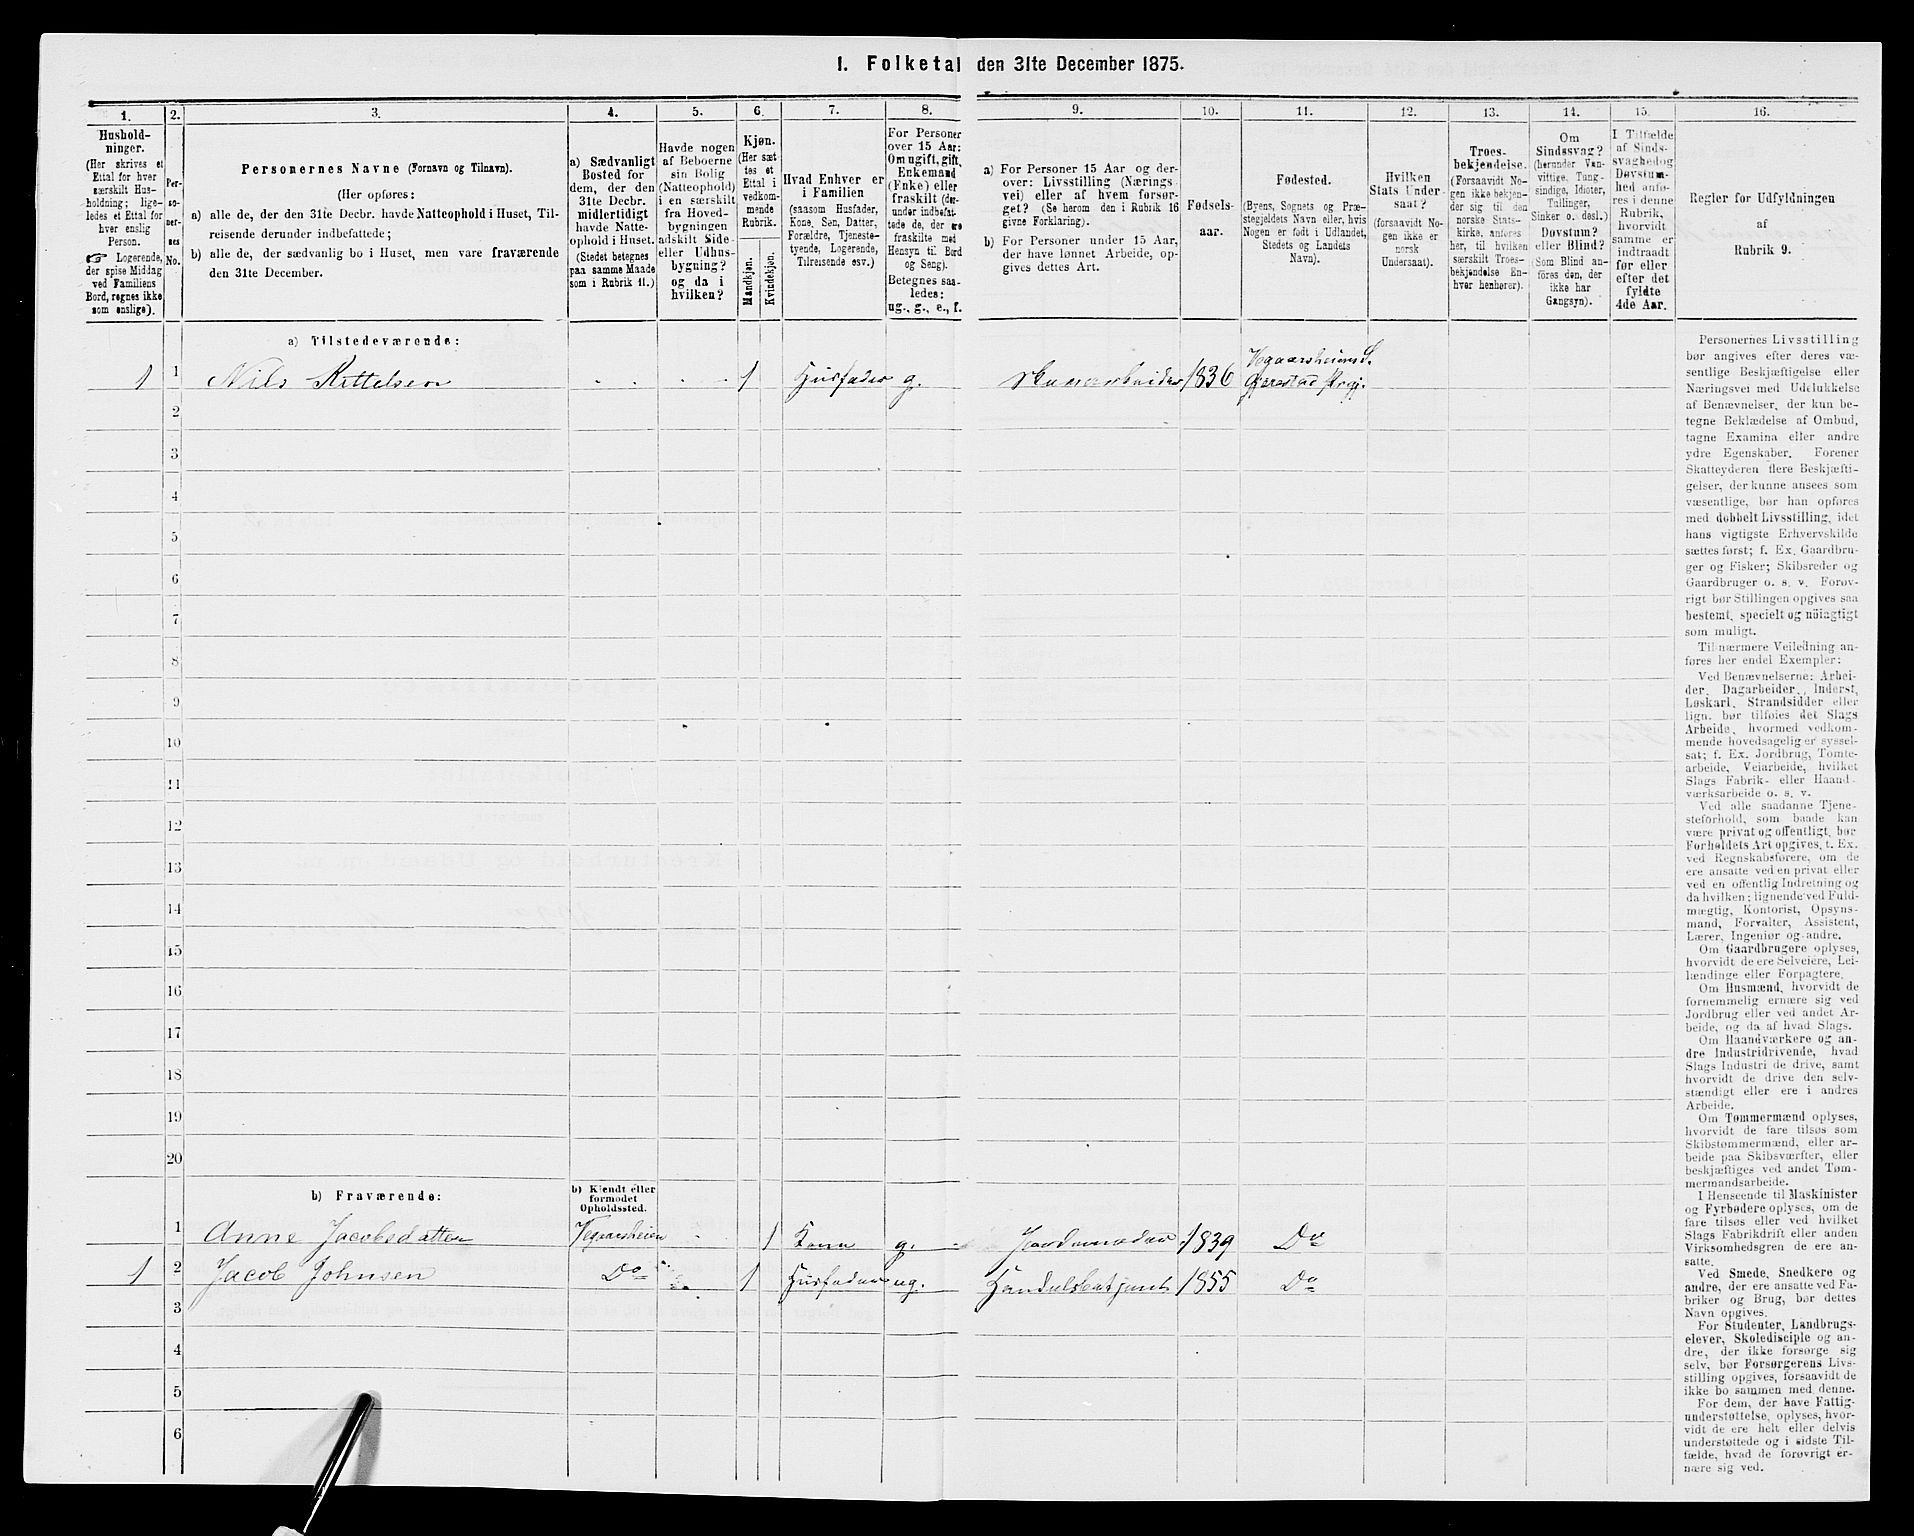 1. Folketal den 31te December 1875.
1.
Hushold-
ninger.
(Her skrives et
Ettal for hver
særskilt Hus-
holdning; lige-
ledes et Ettal for
hver enslig
Person.
☞ Logerende,
der spise Middag
ved Familiens
Bord, regnes ikke
som enslige).
2.
Per-
so-
ner-
nes
No.
3.
Personernes Navne (Fornavn og Tilnavn).
(Her opføres:
a) alle de, der den 31te Decbr. havde Natteophold i Huset, Til-
reisende derunder indbefattede;
b) alle de, der sædvanlig bo i Huset, men vare fraværende
den 31te December.
4.
a) Sædvanligt
Bosted for
dem, der den
31te Decbr.
midlertidigt
havde Natte-
ophold i Huset.
(Stedet betegnes
paa samme Maade
som i Rubrik 11.)
5.
Havde nogen
af Beboerne
sin Bolig
(Natteophold)
i en særskilt
fra Hoved-
bygningen
adskilt Side-
eller Udhus-
bygning?
og da i
hvilken?
6.
Kjøn.
(Her sæt
tes et
Ettal i
vedkom-
mende
Rubrik.
Mandkjøn.
Kvindekjøn.
7.
Hvad Enhver er
i Familien
(saasom Husfader,
Kone, Søn, Datter,
Forældre, Tjeneste-
tyende, Logerende,
Tilreisende osv.)
8.
For Personer
over 15 Aar:
Om ugift, gift,
Enkemand
(Enke) eller
fraskilt (der-
under indbefat-
tede de, der ere
fraskilte med
Hensyn til Bord
og Seng).
Betegnes saa-
ledes:
ug., g., e., f.
9.
a) For Personer 15 Aar og der-
over: Livsstilling (Nærings-
vei) eller af hvem forsør-
get? (Se herom den i Rubrik 16
givne Forklaring).
b) For Personer under 15 Aar,
der have lønnet Arbeide, op-
gives dettes Art.
10.
Fødsels-
aar.
11.
Fødested.
(Byens, Sognets og Præ-
stegjeldets Navn eller, hvis
Nogen er født i Udlandet,
Stedets og Landets
Navn).
12.
Hvilken
Stats Under-
saat?
(forsaavidt No-
gen ikke er
norsk
Undersaat).
13.
Troes-
bekjendelse.
(Forsaavidt No-
gen ikke bekjen-
der sig til den
norske Stats-
kirke, anføres
her, til hvilken
særskilt Troes-
bekjendelse En-
hver henhører).
14.
Om
Sindssvag?
(herunder Van-
vittige, Tung-
sindige, Idioter,
Tullinger,
Sinker o. desl.)
Døvstum?
eller Blind?
(Som Blind an-
føres den, der
ikke har
Gangsyn).
15.
I Tilfælde
af Sinds-
svaghed og
Døvstum-
hed anfø-
res i denne
Rubrik,
hvorvidt
samme er
indtraadt
før eller
efter det
fyldte
4de Aar.
16.
Regler for Udfyldningen
af
Rubrik 9.
a) Tilstedeværende:
1 1 Nils Kittelsen 1 Husfader g. Skovarbeider 1836 Vegaarsheiens S. Gjerestad Prgj.
2
3
4
5
6
7
8
9
10
11
12
13
14
15
16
17
18
19
20
b) Fraværende:
b) Kjendt eller
formodet
Opholdssted.
1 Anne Jacobsdatter Vegaarsheien 1 Kone g. 1839 Do
1 2 Jacob Johnsen Do 1 Husfader ug. Handelsbetjent 1855 Do
3
4
5
6
Personernes Livsstilling
bør angives efter deres væ-
sentlige Beskjæftigelse eller
Næringsvei med Udelukkelse
af Benævnelser, der kun be-
tegne Beklædelse af Ombud,
tagne Examina eller andre
ydre Egenskaber. Forener
Skatteyderen flere Beskjæfti-
gelser, der kunne ansees som
væsentlige, bør han opføres
med dobbelt Livsstilling, idet
hans vigtigste Erhvervskilde
sættes først; f. Ex. Gaardbru-
ger og Fisker; Skibsreder og
Gaardbruger o. s. v. Forøv-
rigt bør Stillingen opgives saa
bestemt, specielt og nöiagtigt
som muligt.
Til nærmere Veiledning an-
føres her endel Exempler:
Ved Benævnelserne: Arbei-
der, Dagarbeider, Inderst,
Løskarl, Strandsidder eller
lign. bør tilføies det Slags
Arbeide, hvormed vedkom-
mende hovedsagelig er syssel-
sat; f. Ex. Jordbrug, Tomte-
arbeide, Veiarbeide, hvilket
Slags Fabrik- eller Haand-
værksarbeide o. s. v.
Ved alle saadanne Tjene-
steforhold, som baade kan
være privat og offentligt, bør
Forholdets Art opgives, t. Ex.
ved Regnskabsførere, om de
ere ansatte ved en privat eller
ved en offentlig Indretning og
da hvilken; lignende ved Fuld-
mægtig, Kontorist, Opsyns-
mand, Forvalter, Assistent,
Lærer, Ingeniør og andre.
Om Gaardbrugere oplyses,
hvorvidt de ere Selveiere, Lei-
lændinge eller Forpagtere.
Om Husmænd, hvorvidt de
fornemmelig ernære sig ved
Jordbrug eller ved andet Ar-
beide, og da af hvad Slags.
Om Haandværkere og an-
dre Industridrivende, hvad
Slags Industri de drive, samt
hvorvidt de drive den selv-
stændigt eller ere i andres
Arbeide.
Om Tømmermænd oplyses,
hvorvidt de fare tilsøs som
Skibstømmermænd, eller ar-
beide paa Skibsværfter, eller
beskjæftiges ved andet Tøm-
mermandsarbeide.
I Henseende til Maskinister
og Fyrbødere oplyses, om de
fare tilsøs eller ved hvilket
Slags Fabrikdrift eller anden
Virksomhedsgren de ere an-
satte.
Ved Smede, Snedkere og
andre, der ere ansatte ved Fa-
briker og Brug, bør dettes
Navn opgives.
For Studenter, Landbrugs-
elever, Skoledisciple og an-
dre, der ikke forsørge sig
selv, bør Forsørgerens Livs-
stilling opgives, forsaavidt de
ikke bo sammen med denne.
For dem, der have Fattig-
understøttelse, oplyses, hvor-
vidt de ere helt eller delvis
understøttede og i sidste Til-
fælde, hvad de forøvrigt er-
nære sig ved.